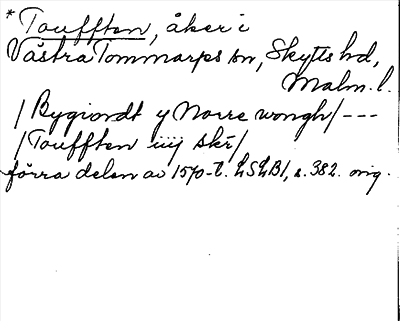 * Toufften, åker i
Västra Tommarps sn, Skytts hd,
Malm. l.
/ Bygiordt y Norre wongh /---
/ Toufften iiij skr /
förra delen av 1570-t. LSLB1, s. 382. orig.